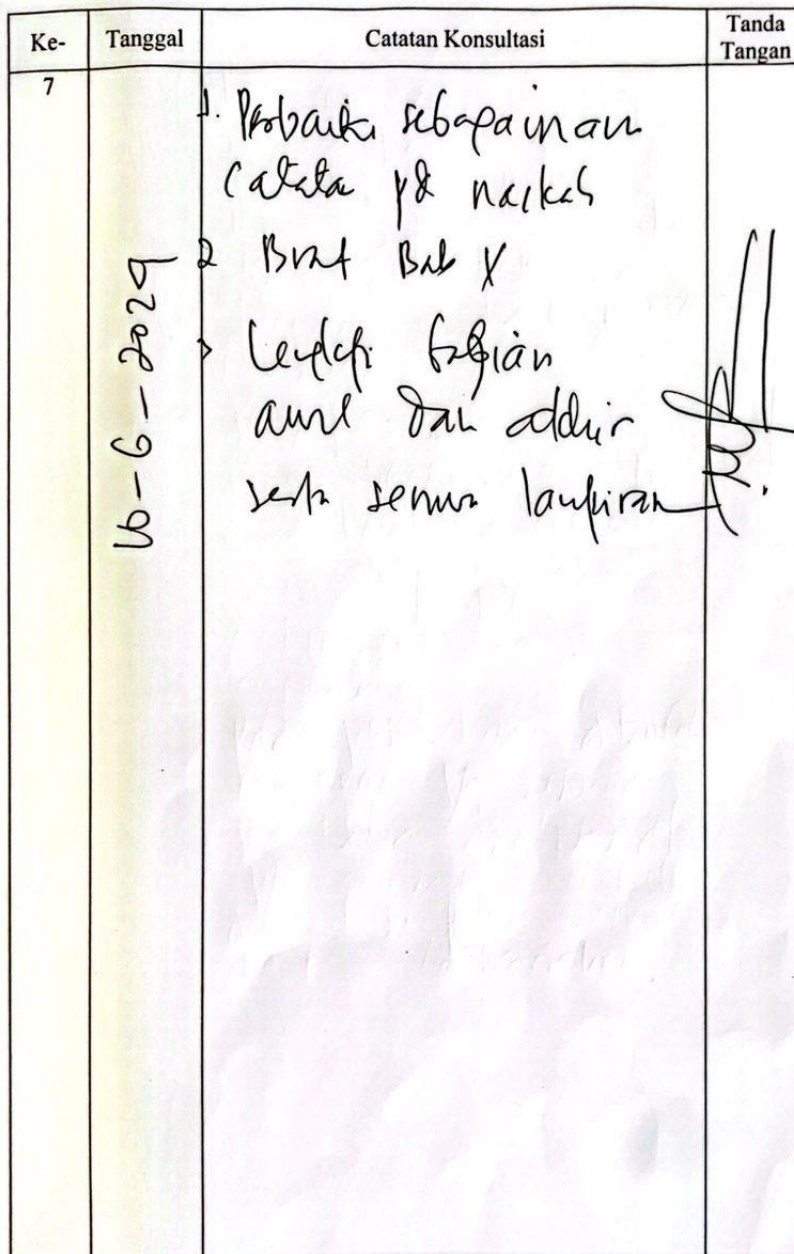 Ke-
Tanggal
Catatan Konsultasi
Tanda
Tangan
7
1. Perbaiki sebagaimana
Catata pd naskah
2 Buat Bab V
3 Lengkapi bagian
awal dan akhir
serta semua lampiran